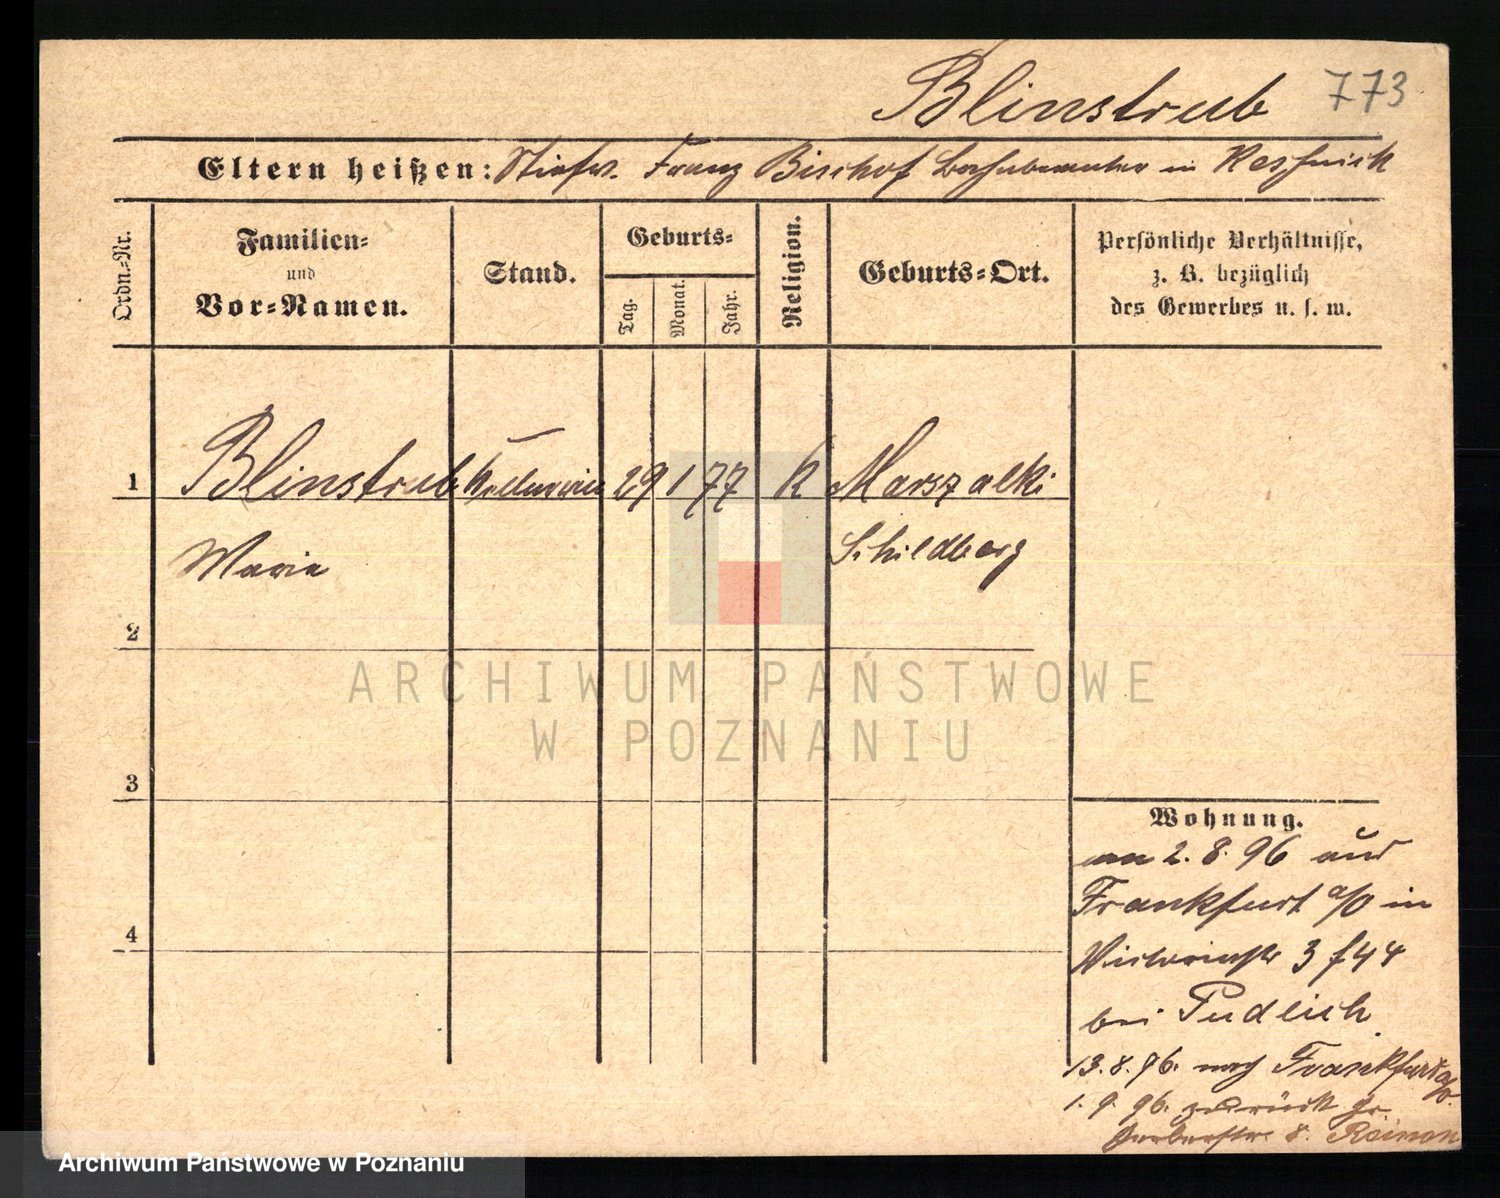 Blinstrub 773
Eltern heißen: Stiefv. Franz Bischof Bahnbeamter in
Ordn.-Nr.
Familien-
und
Vor-Namen.
Stand.
Geburts-
Tag.
Monat.
Jahr.
Religion.
Geburts-Ort.
Persönliche Verhältnisse,
z. B. bezüglich
des Gewerbes u. s. w.
1 Blinstrub Kellnerin 29 1 77 K Marszalki
Maria Schildberg
2
ARCHIWUM PAŃSTWOWE
W POZNANIU
3
Wohnung.
2. 8. 96 aus
Frankfurt a/O in
4
Victoriastr 3
bei Pudlich
13. 8. 96. nach Frankfurt a/O.
1. 9. 96. zurück gr.
Gerberstr. 8.
Archiwum Państwowe w Poznaniu